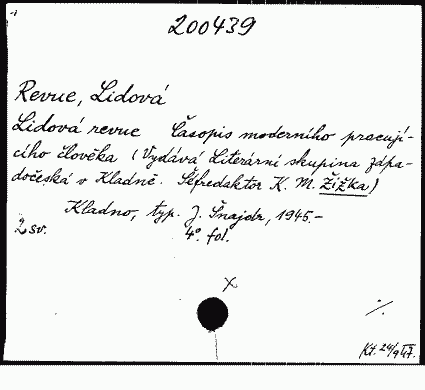 200439
Revue, Lidová
Lidová revue Časopis moderního pracují-
cího člověka (Vydává Literární skupina zápa-
dočeská v Kladně. Šéfredaktor K. M. Žižka)
Kladno, typ. J. Šnajdr, 1945.-
2 sv. 4° fol.
x
Kt. 24/9